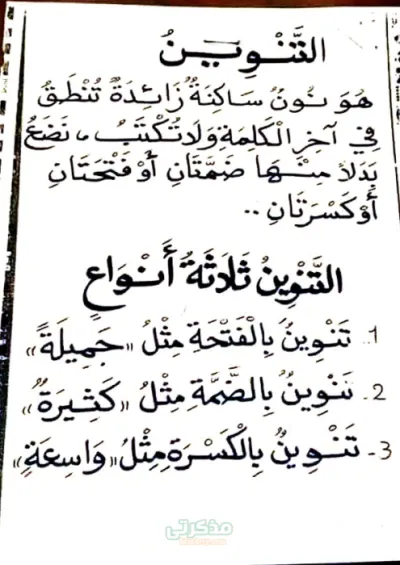 التَّنْوِينُ
هُوَ نُونٌ سَاكِنَةٌ زَائِدَةٌ تُنْطَقُ
فِي آخِرِ الْكَلِمَةِ وَلَا تُكْتَبُ، نَضَعُ
بَدَلًا مِنْهَا ضَمَّتَانِ أَوْ فَتْحَتَانِ
أَوْ كَسْرَتَانِ ..
التَّنْوِينُ ثَلَاثَةُ أَنْوَاعٍ
1. تَنْوِينٌ بِالْفَتْحَةِ مِثْلُ «جَمِيلَةً»
2- تَنْوِينٌ بِالضَّمَّةِ مِثْلُ «كَثِيرَةٌ»
3- تَنْوِينٌ بِالْكَسْرَةِ مِثْلُ «وَاسِعَةٍ»
مذكرتي